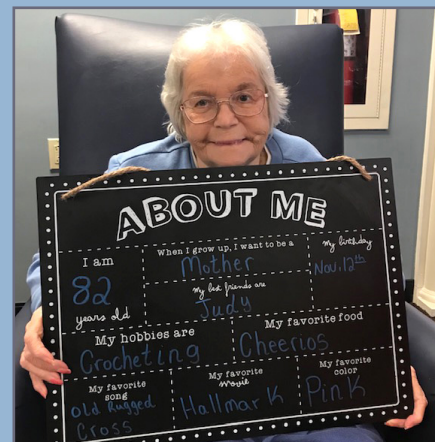 ABOUT ME
I am
82
years old
When I grow up, I want to be a
Mother
My birthday
Nov. 12th
My best friends are
Judy
My hobbies are
Crocheting
My favorite food
Cheerios
My favorite
song
Old Rugged
Cross
My favorite
movie
Hallmark
My favorite
color
Pink